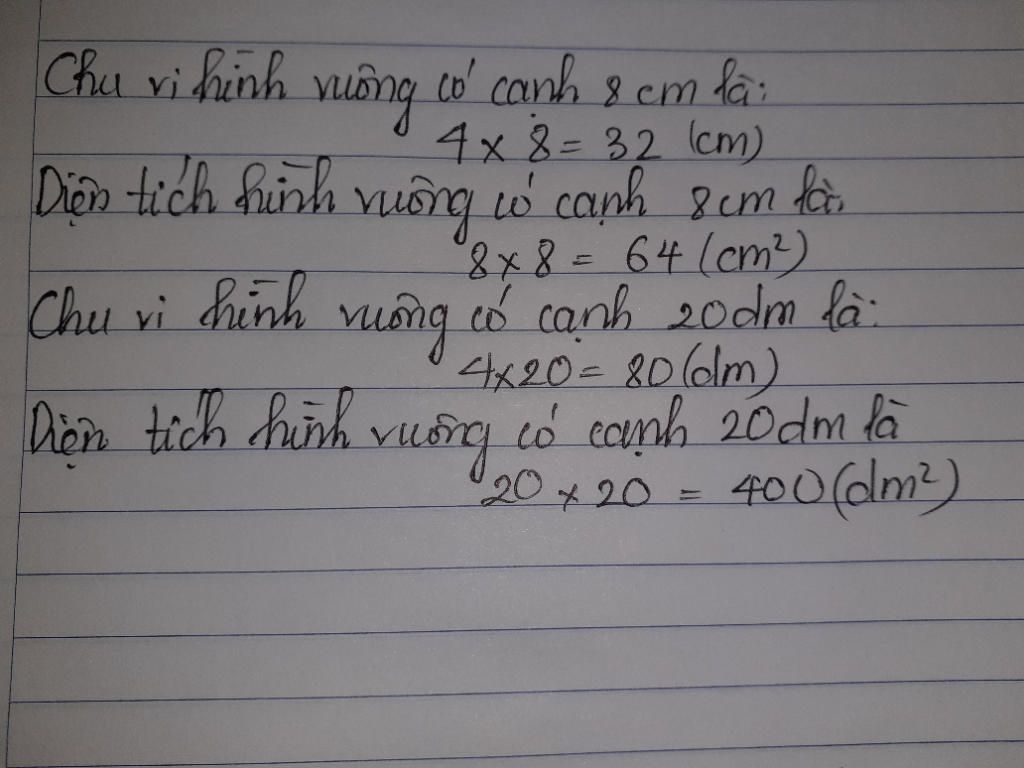 Chu vi hình vuông có cạnh 8 cm là:
4 x 8 = 32 (cm)
Diện tích hình vuông có cạnh 8cm là:
8 x 8 = 64 (cm²)
Chu vi hình vuông có cạnh 20dm là:
4x20 = 80(dm)
Diện tích hình vuông có cạnh 20dm là
20 x 20 = 400(dm²)